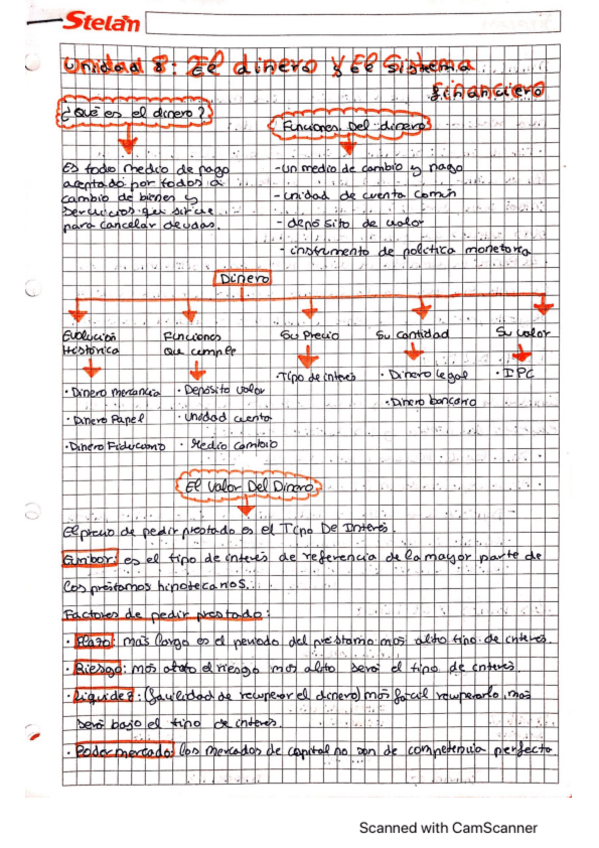 Stelan
Unidad 8: El dinero y El Sistema
financiero
¿Qué es el dinero?
Funciones Del dinero
Es todo medio de pago
aceptado por todos a
cambio de bienes y
servicios que sirve
para cancelar deudas.
-un medio de cambio y pago
-unidad de cuenta común
-depósito de valor
-instrumento de política monetaria
Dinero
Evolución
Histórica
·Dinero mercancía
·Dinero Papel
·Dinero Fiduciario
Funciones
que cumple
·Depósito valor
·Unidad cuenta
·Medio cambio
Su Precio
·Tipo de interés
Su Cantidad
·Dinero legal
·Dinero bancario
Su valor
·IPC
El Valor Del Dinero
El precio de pedir prestado es el Tipo De Interés.
Euribor: es el tipo de interés de referencia de la mayor parte de
los préstamos hipotecarios.
Factores de pedir prestado:
·Plazo: más largo es el periodo del préstamo mas alto tipo de interés.
·Riesgo: más alto el riesgo mas alto será el tipo de interés.
·Liquidez: (facilidad de recuperar el dinero) más fácil recuperarlo, mas
será bajo el tipo de interés.
·Poder mercado: los mercados de capital no son de competencia perfecta
Scanned with CamScanner